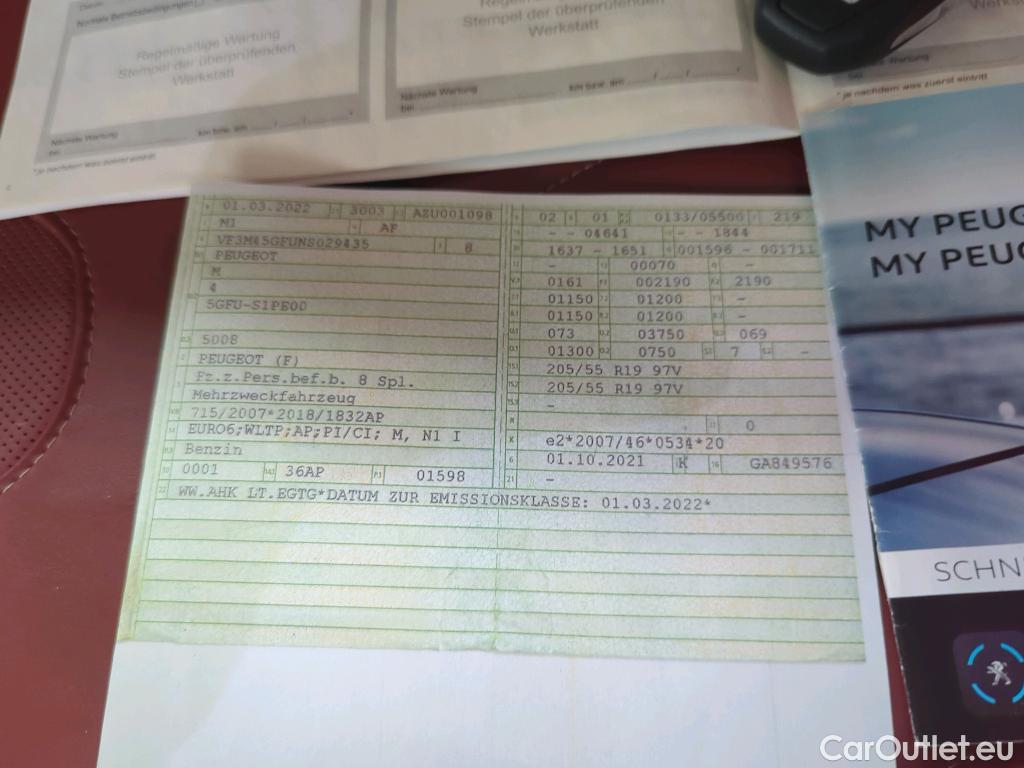 Normale Betriebsbedingungen
Regelmäßige Wartung
Stempel der überprüfenden
Werkstatt
Nächste Wartung
bei
km bzw. am
*je nachdem was zuerst eintritt
Stempel der überprüfenden
Werkstatt
Nächste Wartung
bei
km bzw. am
* je nachdem was zuerst eintritt
01.03.2022 3003 AZU001098
M1 AF
VF3M45GFUNS029435 8
PEUGEOT
M
4
5GFU-S1PE00
5008
PEUGEOT (F)
Fz.z.Pers.bef.b. 8 Spl.
Mehrzweckfahrzeug
715/2007*2018/1832AP
EURO6;WLTP;AP;PI/CI; M, N1 I
Benzin
0001 36AP 01598
WW.AHK LT.EGTG*DATUM ZUR EMISSIONSKLASSE: 01.03.2022*
02 01 0133/05500 219
- - 04641 - - 1844
1637 - 1651 001596 - 001711
- 00070 -
0161 002190 2190
01150 01200 -
01150 01200 -
073 03750 069
01300 0750 7 -
205/55 R19 97V
205/55 R19 97V
-
0
e2*2007/46*0534*20
01.10.2021 K GA849576
-
MY PEUG
MY PEUG
SCHN
CarOutlet.eu